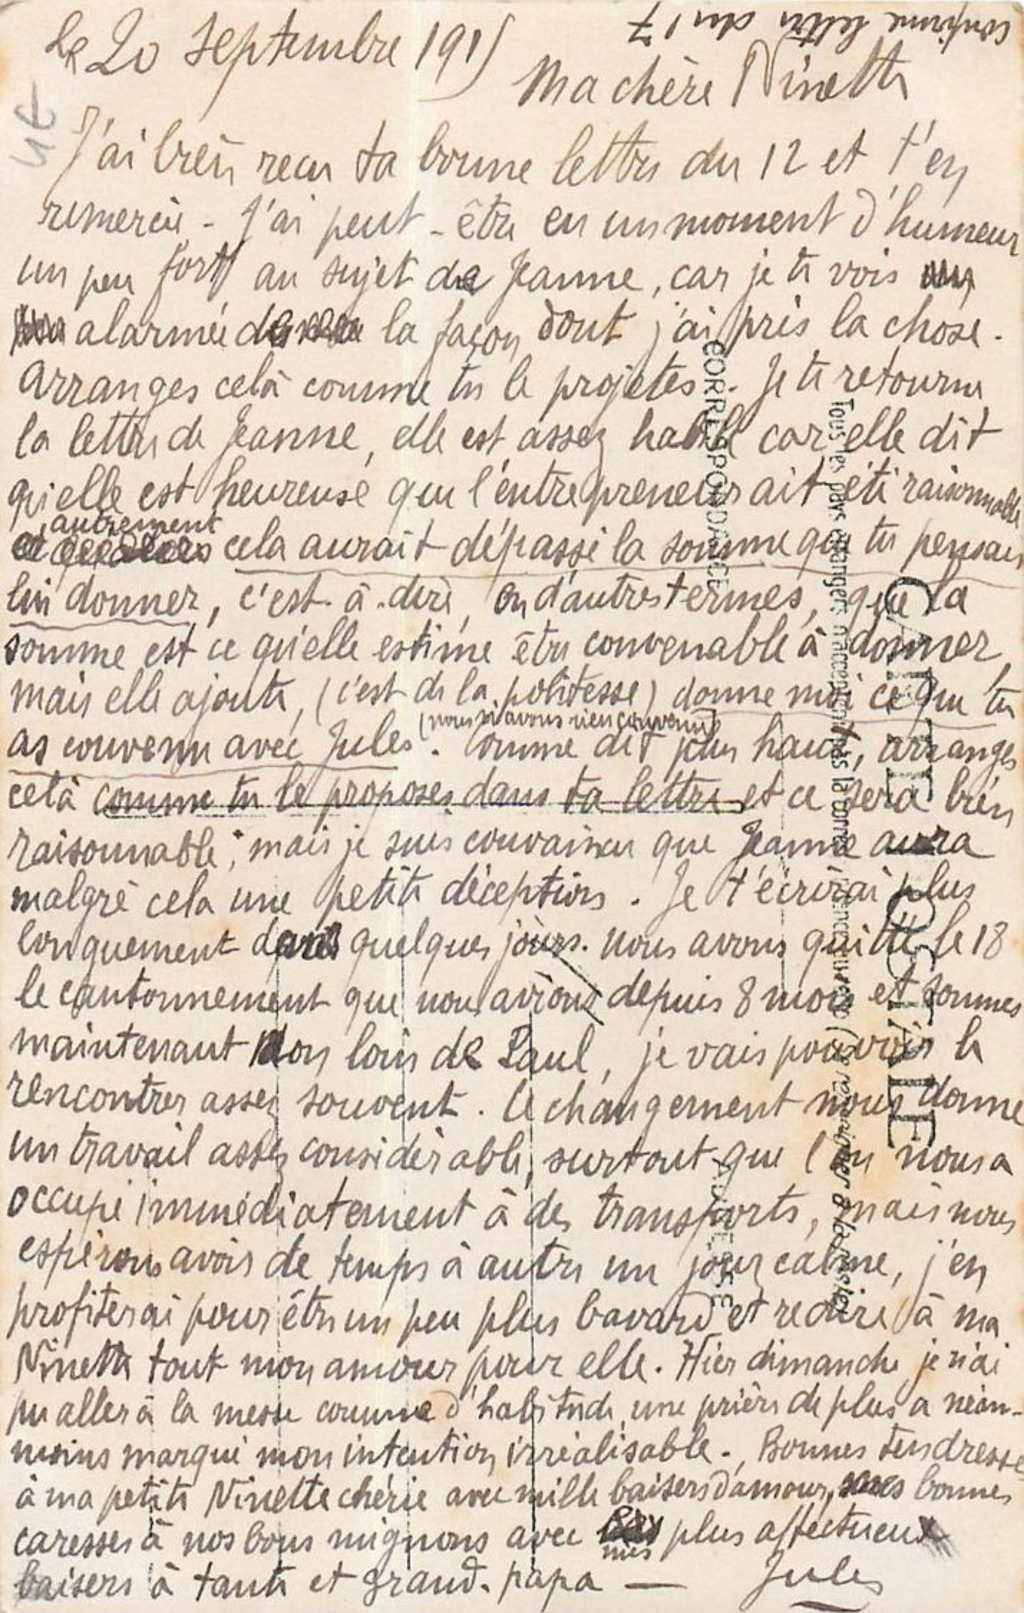 confirme lettre du 17
Le 20 septembre 1915
Ma chère Ninette
J'ai bien reçu ta bonne lettre du 12 et t'en
remercie - J'ai peut-être eu un moment d'humeur
un peu fort au sujet de Jeanne, car je te vois
alarmée de la façon dont j'ai pris la chose.
Arranges celà comme tu le projètes. Je te retourne
la lettre de Jeanne, elle est assez habile car elle dit
qu'elle est heureuse que l'entrepreneur ait été raisonnable
autrement
cela aurait dépassé la somme que tu pensais
lui donner, c'est-à-dire, en d'autres termes, que la
somme est ce qu'elle estime être convenable à donner,
mais elle ajoute, (c'est de la politesse) donne moi ce que tu
(nous n'avons rien convenu)
as convenu avec Jules. Comme dit plus haut, arranges
celà comme tu le proposes dans ta lettre et ce sera bien
raisonnable; mais je suis convaincu que Jeanne aura
malgré cela une petite déception. Je t'écrirai plus
longuement dans quelques jours. Nous avons quitté le 18
le cantonnement que nous avions depuis 8 mois et sommes
maintenant non loin de Paul, je vais pouvoir le
rencontrer assez souvent. Ce changement nous donne
un travail assez considérable, surtout que l'on nous a
occupé immédiatement à des transports, mais nous
espérons avoir de temps à autre un jour calme, j'en
profiterai pour être un peu plus bavard et redire à ma
Ninette tout mon amour pour elle. Hier dimanche, je n'ai
pu aller à la messe comme d'habitude, une prière de plus a néan-
moins marqué mon intention irréalisable. Bonnes tendresses
à ma petite Ninette chérie avec mille baisers d'amour, mes bonnes
caresses à nos bons mignons avec mes plus affectueux
baisers à tante et grand-papa — Jules
CARTE POSTALE
Tous les pays étrangers n'acceptent pas la correspondance au recto (Se renseigner à la poste)
CORRESPONDANCE
ADRESSE